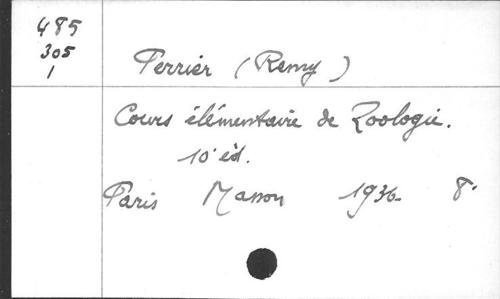 485
305
1
Perrier (Remy)
Cours élémentaire de Zoologie.
10° éd.
Paris Masson 1936 8°